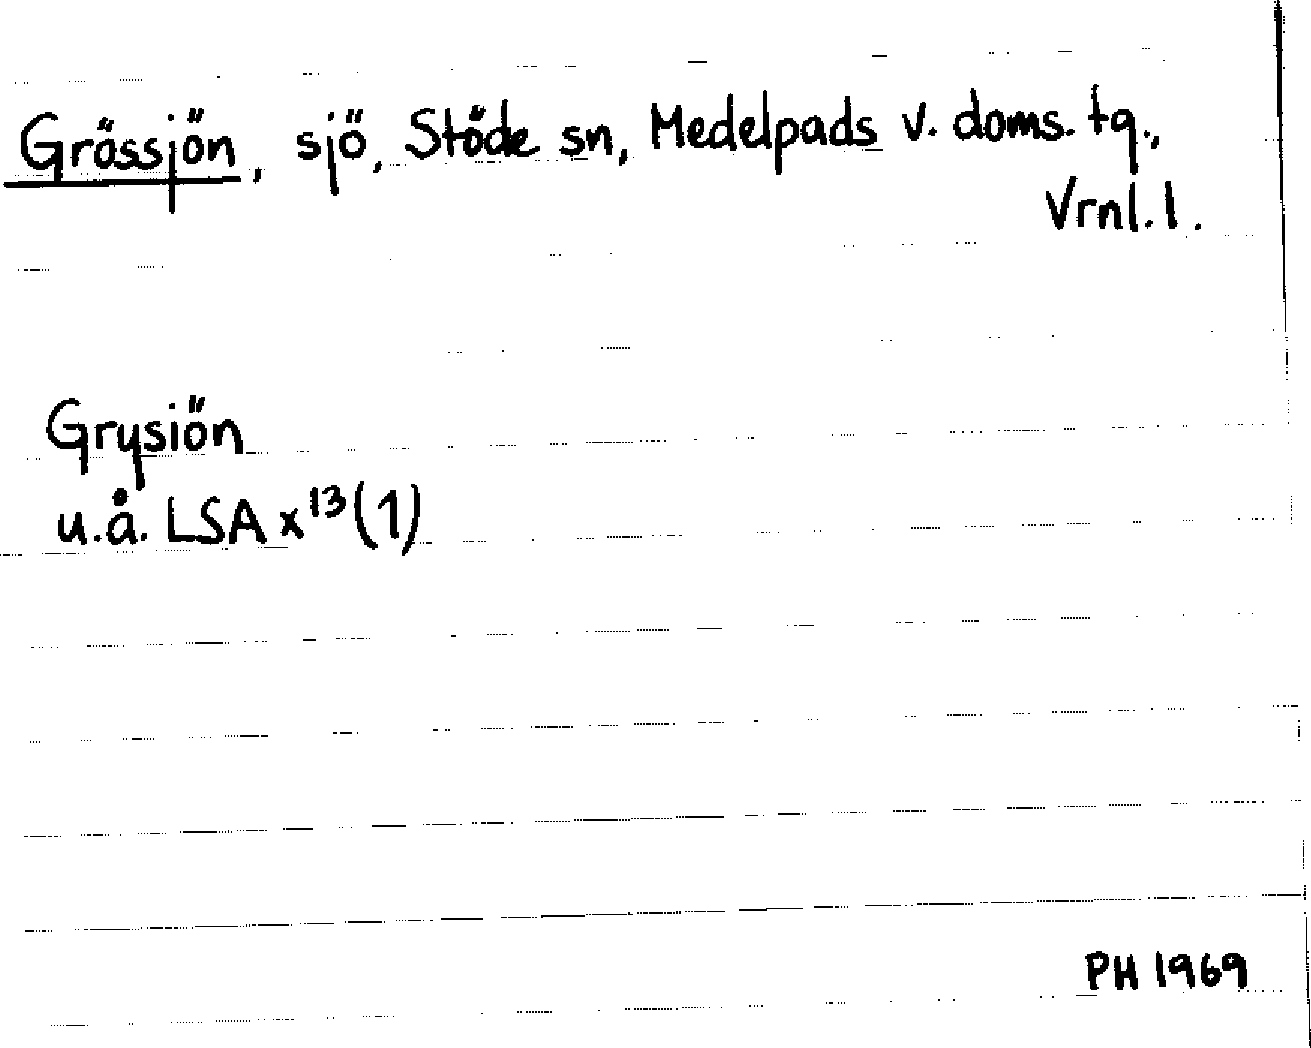 Grössjön, sjö, Stöde sn, Medelpads v. doms. tg.,
Vrnl. l.
Grysiön
u.å. LSA x¹³(1)
PH 1969